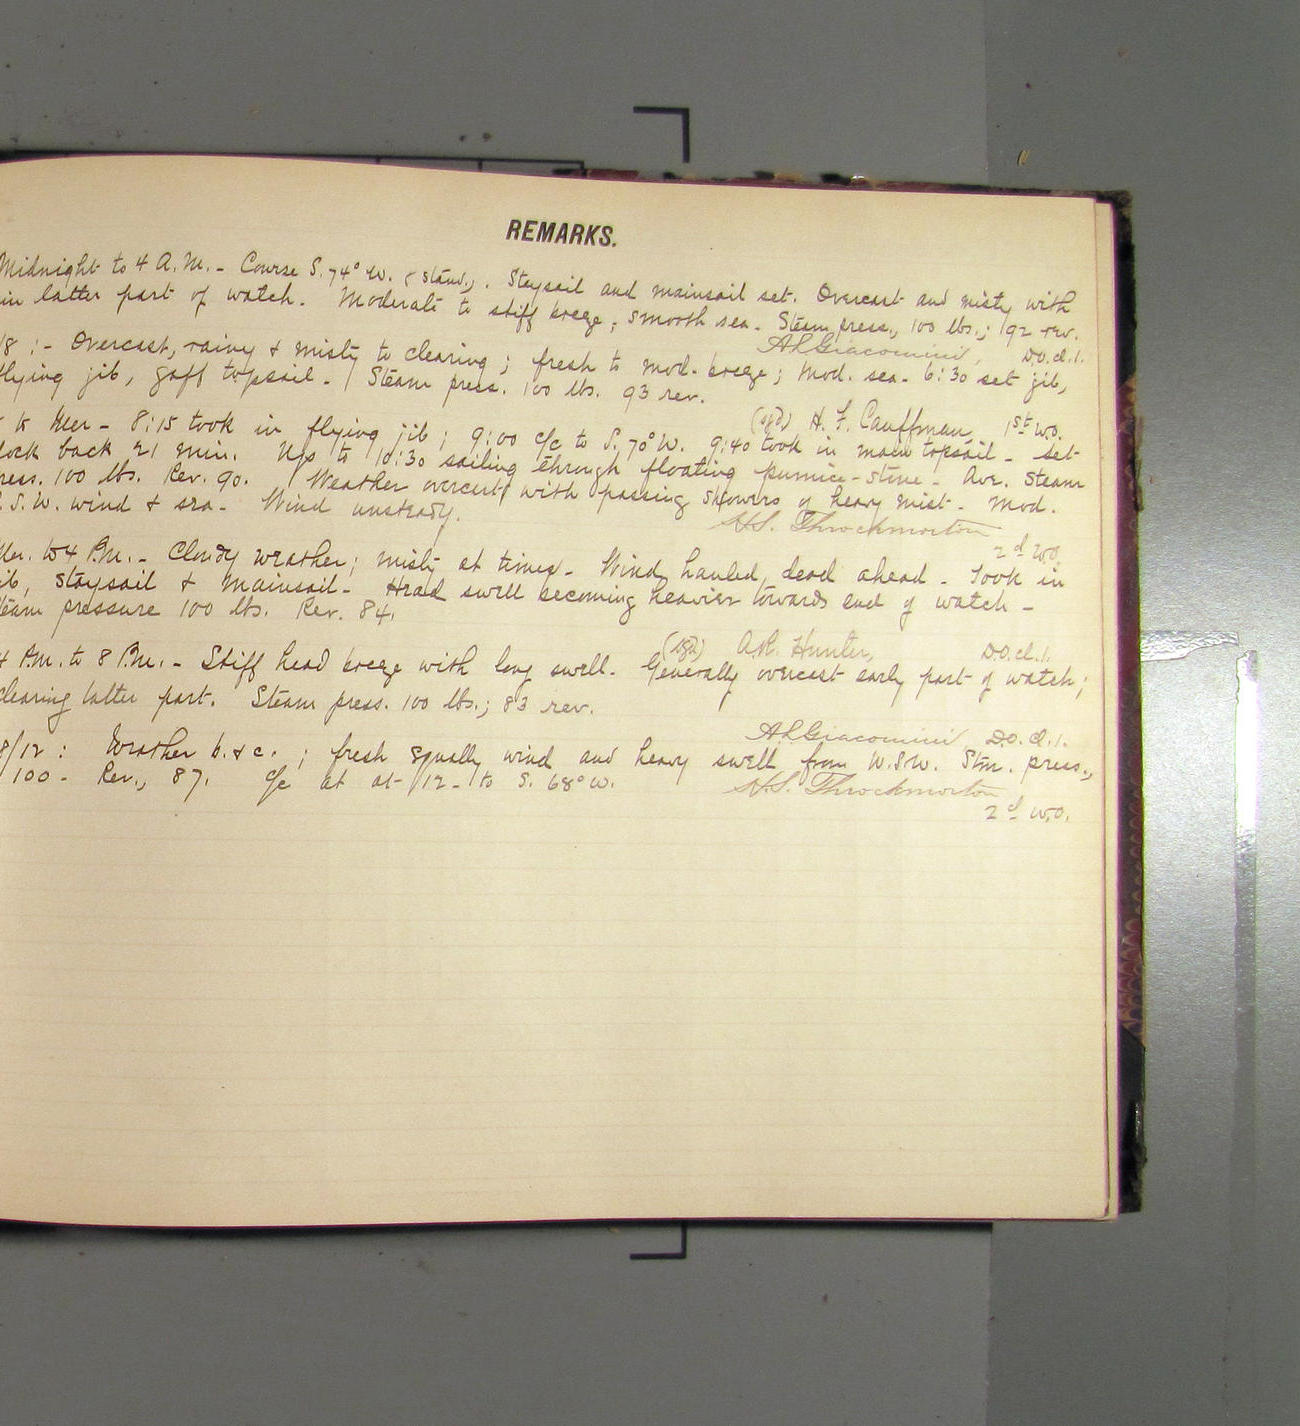 REMARKS.
Midnight to 4 A.M. - Course S. 74° W. (stand.). Staysail and mainsail set. Overcast and misty with
in latter part of watch. Moderate to stiff breeze; smooth sea. Steam press., 100 lbs.; 92 rev.
A.L. Giacomini, D.O. cl. 1.
/8 :- Overcast, rainy & misty to clearing; fresh to mod. breeze; mod. sea. 6:30 set jib,
flying jib, gaff topsail. Steam press. 100 lbs. 93 rev.
(sgd) H. F. Cauffman, 1st W.O.
to Mer - 8:15 took in flying jib; 9:00 c/c to S. 70° W. 9:40 took in main topsail - Set
lock back 21 min. Up to 10:30 sailing through floating pumice-stone - Ave. Steam
ress. 100 lbs. Rev. 90. Weather overcast with passing showers of heavy mist. Mod.
S.W. wind & sea - Wind unsteady.
H.S. Throckmorton
2d W.O.
Mer. to 4 P.M. - Cloudy weather; misty at times - Wind hauled dead ahead - Took in
ib, staysail & mainsail - Head swell becoming heavier towards end of watch -
team pressure 100 lbs. Rev. 84.
(sgd) A.R. Hunter, D.O. cl. 1.
4 P.M. to 8 P.M. - Stiff head breeze with long swell. Generally overcast early part of watch;
clearing latter part. Steam press. 100 lbs.; 83 rev.
A.L. Giacomini D.O. cl. 1.
8/12 : Weather b. & c. ; fresh squally wind and heavy swell from W.S.W. Stm. press.,
100 - Rev., 87. c/c at at 12 - to S. 68° W.
H.S. Throckmorton
2d W.O.